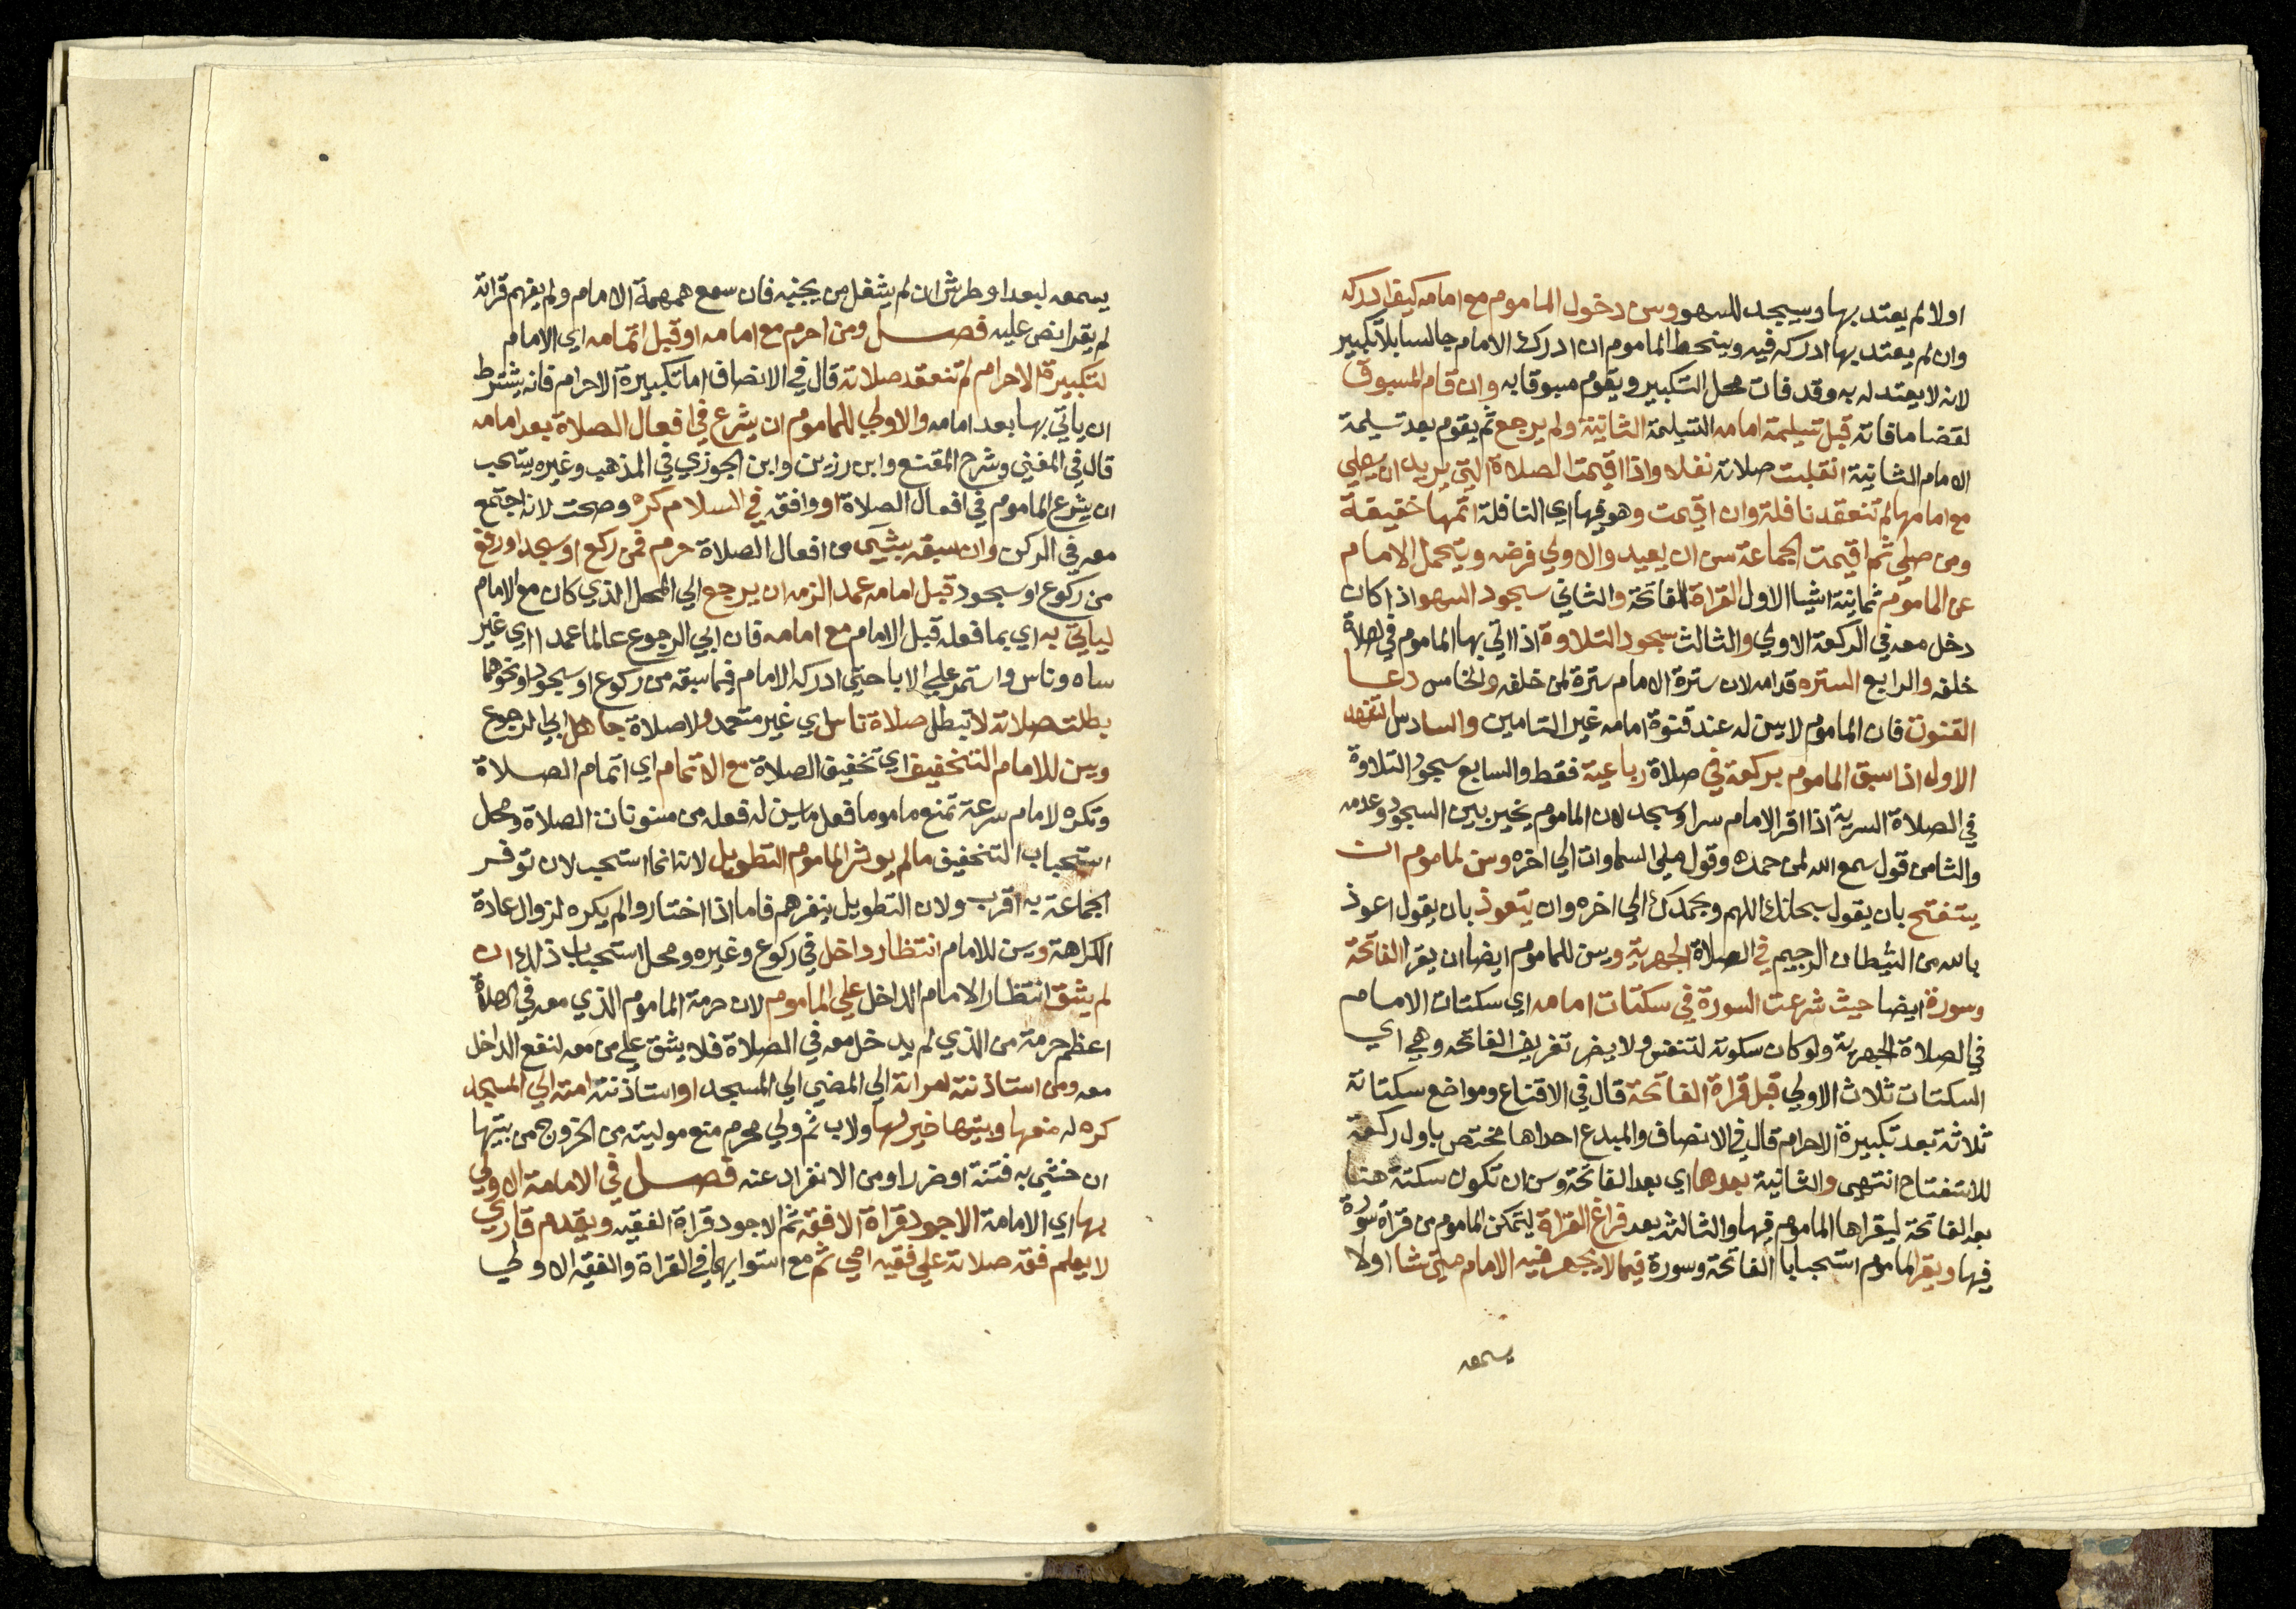 اولا لم يعتد بها ويسجد للسهو وسن دخول الماموم مع امامه كيف ادركه
وان لم يعتد بها ادركه فيه وينحط الماموم ان ادرك الامام جالسا بلا تكبير
لانه لا يعتد له به وقد فات محل التكبير ويقوم مسبوقا به وان قام المسبوق
لقضا ما فاته قبل تسليمة امامه التسليمة الثانية ولم يرجع ثم يقوم بعد تسليمة
الامام الثانية انقلبت صلاته نفلا واذا اقيمت الصلاة التي يريد ان يصلي
مع امامها لم تنعقد نافلة وان اقيمت وهو فيها اي النافلة اتمها خفيفة
ومن صلي ثم اقيمت الجماعة سن ان يعيد والاولي فرضه ويتحمل الامام
عن الماموم ثمانية اشيا الاول القراة للفاتحة والثاني سجود السهو اذا كان
دخل معه في الركعة الاولي والثالث سجود التلاوة اذا اتي بها الماموم في الصلاة
خلفه والرابع الستره قدامه لان سترة الامام سترة لمن خلفه والخامس دعا
القنوت فان الماموم لا يسن له عند قنوة امامه غير التامين والسادس التشهد
الاول اذا سبق الماموم بركعة في صلاة رباعية فقط والسابع سجود التلاوة
في الصلاة السرية اذا اقرا الامام سرا وسجد لان الماموم يخير بين السجود وعدمه
والثامن قول سمع الله لمن حمده وقول ملئ السماوات الي اخره وسن لماموم ان
يستفتح بان يقول سبحانك اللهم وبحمدك الي اخره وان يتعوذ بان يقول اعوذ
بالله من الشيطان الرجيم في الصلاة الجهرية ويسن للماموم ايضا ان يقرا الفاتحة
وسورة ايضا حيث شرعت السورة في سكتات امامه اي سكتات الامام
في الصلاة الجهرية ولو كان سكوته لتنفس ولا يضر تفريق الفاتحه وهي اي
السكتات ثلاث الاولي قبل قراة الفاتحة قال في الاقناع ومواضع سكتاته
ثلاثة بعد تكبيرة الاحرام قال في الانصاف والمبدع احداها مختص باول ركعة
للاستفتاح انتهى والثانية بعدها اي بعد الفاتحة وسن ان تكون سكتة هنا
بعد الفاتحة ليقراها الماموم فيها والثالثة بعد فراغ القراة ليتمكن الماموم من قراة سورة
فيها ويقرا الماموم استحبابا الفاتحة وسورة فيما لا يجهر فيه الامام متي شا اولا
يسمعه
يسمعه لبعد او طرش ان لم يشغل من بجنبه فان سمع همهمة الامام ولم يفهم قراته
لم يقرا نص عليه فصل ومن احرم مع امامه او قبل اتمامه اي الامام
لتكبيرة الاحرام لم تنعقد صلاته قال في الانصاف اما تكبيرة الاحرام فانه يشترط
ان ياتي بها بعد امامه والاولي للماموم ان يشرع في افعال الصلاة بعد امامه
قال في المغني وشرح المقنع وابن رزين وابن الجوزي في المذهب وغيره يستحب
ان يشرع الماموم في افعال الصلاة او وافقه في السلام كره وصحت لانه اجتمع
معه في الركن وان سبقه بشي من افعال الصلاة حرم فمن ركع او سجد او رفع
من ركوع او سجود قبل امامه عمدا لزمه ان يرجع الي المحل الذي كان مع الامام
لياتي به اي بما فعله قبل الامام مع امامه فان ابي الرجوع عالما عمدا اي غير
ساه وناس واستمر علي الابا حتي ادركه الامام فيما سبقه من ركوع او سجود او نحوهما
بطلت صلاته لا تبطل صلاة ناس اي غير متعمد ولا صلاة جاهل ابي الرجوع
ويسن للامام التخفيف اي تخفيف الصلاة مع الاتمام اي اتمام الصلاة
وتكره لامام سرعة تمنع ماموما فعل ما يسن له فعله من مسنونات الصلاة ومحل
استحباب التخفيف ما لم يوثر الماموم التطويل لانه انما استحب لان توفر
الجماعة به اقرب ولان التطويل ينفرهم فاما اذا اختاروا لم يكره لزوال عادة
الكراهة ويسن للامام انتظار داخل في ركوع وغيره ومحل استحباب ذلك ان
لم يشق انتظار الامام الداخل علي الماموم لان حرمة الماموم الذي معه في الصلاة
اعظم حرمة من الذي لم يدخل معه في الصلاة فلا يشق علي من معه لنفع الداخل
معه ومن استاذنته امراته الي المضي الي المسجد او استاذنته امته الي المسجد
كره له منعها وبيتها خير لها ولاب ثم ولي محرم منع موليته من الخروج من بيتها
ان خشي به فتنة او ضررا ومن الانفراد عنه فصل في الامامة الاولي
بها اي الامامة الاجود قراة الافقه ثم الاجود قراة الفقيه ويقدم قاري
لا يعلم فقه صلاته علي فقيه امي ثم مع استوايهما في القراة والفقه الاولي